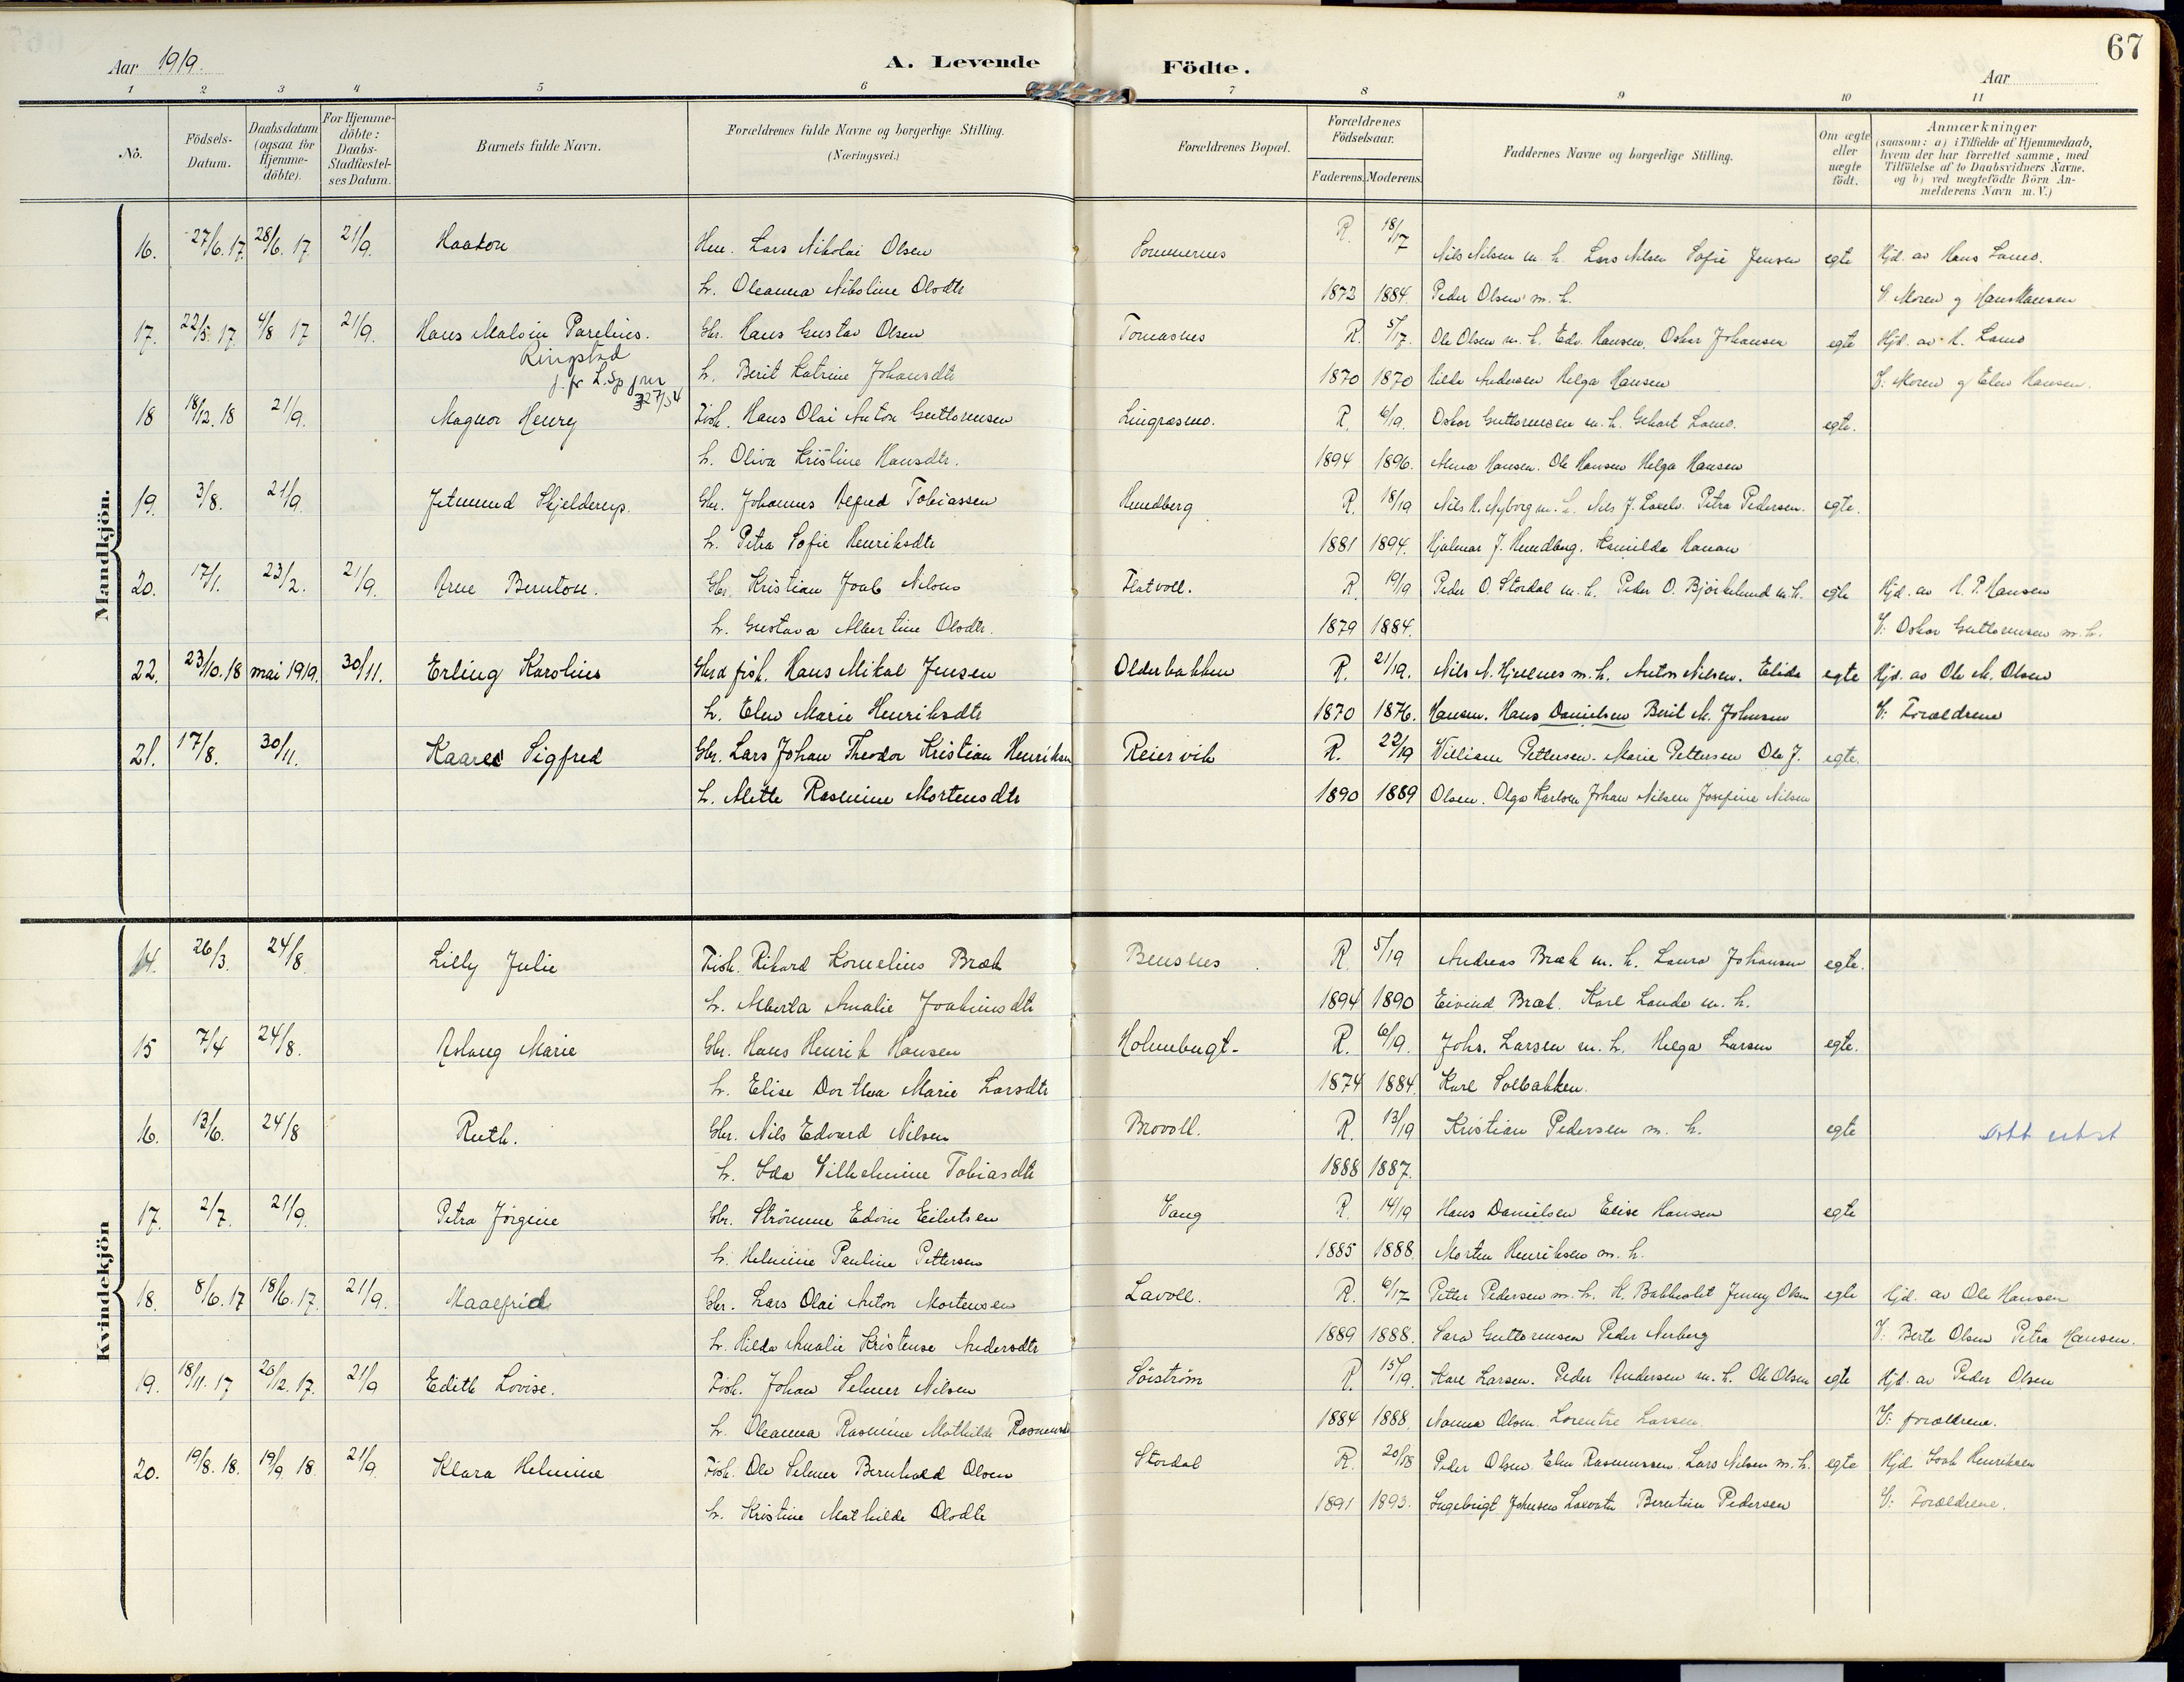 67
Aar 1919.
A. Levende Födte.
Aar
1 2 3 4 5 6 7 8 9 10 11
No.
Födsels-Datum.
Daabsdatum (ogsaa for Hjemme-döbte).
For Hjemme-döbte: Daabs-Stadfæstel-ses Datum.
Barnets fulde Navn.
Forældrenes fulde Navne og borgerlige Stilling. (Næringsvei.)
Forældrenes Bopæl.
Forældrenes Födselsaar.
Faderens. Moderens.
Faddernes Navne og borgerlige Stilling.
Om ægte eller uægte födt.
Anmærkninger
(saasom: a) i Tilfælde af Hjemmedaab,
hvem der har forrettet samme, med
Tilföielse af to Daabsvidners Navne.
og b) ved uægtefödte Börn An-
melderens Navn m. V.)
Mandkjön.
16. 27/6. 17. 28/6. 17. 21/9. Haakon Lars Nikolai Olsen R. 18/17 Nils Nilsen m. h. Lars Nilsen Sofie Jensen egte Hjd. av Hans
h. Oleanna Nikoline Olsdtr 1873 1884. Peder Olsen m. h. V. Moren g Hans Hansen
17. 22/5. 17. 4/8 17 21/9. Hans Malvin Parelius. Gbr. Hans Gustav Olsen Tomasnes R. 5/17. Ole Olsen m. h. Edv. Hansen. Oskar Johansen egte Hjd. av H.
Ringstad
h. Berit Katrine Johansdtr 1870 1870 Hilda Andersen Helga Hansen V: Moren g Elen Hansen.
18 18/12. 18 21/9. Magnor Henry Fisk. Hans Olai Anton Guttormsen R. 6/19. Oskar Guttormsen m. h. egte.
h. Oliva Kristine Hansdtr. 1894 1896. Hansen. Ole Hansen Helga Hansen
19. 3/8. 21/9. Skjelderup. Gbr. Johannes Alfred Tobiassen Hundberg R. 18/19 Nils N. Nyborg m. h. Nils J. Petra Pedersen. egte.
h. Petra Sofie Henriksdtr 1881 1894. Hjalmar J. Hundberg. Hansen
20. 17/1. 23/2. 21/9. Arne Bernton. Gbr. Kristian Joak Nilsen Flatvoll. R. 19/19 Peder O. Stordal m. h. Peder O. Björklund m. h. egte Hjd. av H. P. Hansen
h. Gustava Albertine Olsdtr. 1879 1884. V: Oskar Guttormsen m. h.
22. 23/10. 18 mai 1919. 30/11. Erling Karolius Gbr a fisk. Hans Mikal Jensen Olderbakken R. 21/19. Nils N. Hjellnes m. h. Anton Nilsen. Elida egte Hjd. av Ole M. Olsen
h. Elen Marie Henriksdtr 1870 1876. Hansen. Hans Danielsen Berit M. Johnsen V: Forældrene
21. 17/8. 30/11. Kaare Sigfred Gbr. Lars Johan Theodor Kristian Henriksen Reiervik R. 22/19 William Pettersen. Marie Pettersen Ole J. egte.
h. Mette Rasmine Mortensdtr 1890 1889 Olsen. Olga Karlsen Johan Nilsen Josefine Nilsen
Kvindekjön
14. 26/3. 24/8. Lilly Julie Fisk. Rikard Kornelius Bræk Bensnes R. 5/19 Andreas Bræk m. h. Laura Johansen egte.
h. Alberta Amalie Joakimsdtr 1894 1890 Eivind Bræk. Karl Lande m. h.
15 7/4 24/8. Aslaug Marie Gbr. Hans Henrik Hansen Holmbugt. R. 6/19. Johs. Larsen m. h. Helga Larsen egte.
h. Elise Dorthea Marie Larsdtr 1874 1884. Karl Solbakken.
16. 13/6. 24/8 Ruth. Gbr. Nils Edvard Nilsen Brovoll. R. 13/19 Kristian Pedersen m. h. egte
h. Ida Vilhelmine Tobiasdtr 1888 1887.
17. 2/7. 21/9. Petra Jörgine Gbr. Strömme Edvin Eilertsen Vang R. 14/19 Hans Danielsen Elise Hansen egte
h. Helmine Pauline Pettersen 1885 1888. Morten Henriksen m. h.
18. 8/6. 17 18/6. 17. 21/9. Maalfrid Gbr. Lars Olai Anton Mortensen Lavoll. R. 6/17 Petter Pedersen m. h. Jenny Olsen egte Hjd. av Ole Hansen
h. Hilda Amalie Kristense Andersdtr 1889 1888. Sara Guttormsen Peder Nerberg V: Berte Olsen Petra Hansen.
19. 18/11. 17 26/12. 17. 21/9 Edith Lovise. Fisk. Johan Selmer Nilsen Söiström R. 15/19. Karl Larsen. Peder Andersen m. h. Ole Olsen egte Hjd. av Peder Olsen
h. Oleanna Rasmine Mathilde 1884 1888. Nanna Olsen. Lorentze Larsen. V: forældrene.
20. 19/8. 18. 19/9. 18. 21/9. Klara Helmine Fisk. Ole Selmer Bernhard Olsen Stordal R. 20/18 Peder Olsen. Elen Rasmussen. Lars Nilsen m. h. egte Hjd. Isak Henriksen
h. Kristine Mathilde Olsdtr 1891 1893. Ingebrigt Johnsen Berntine Pedersen V: Forældrene.